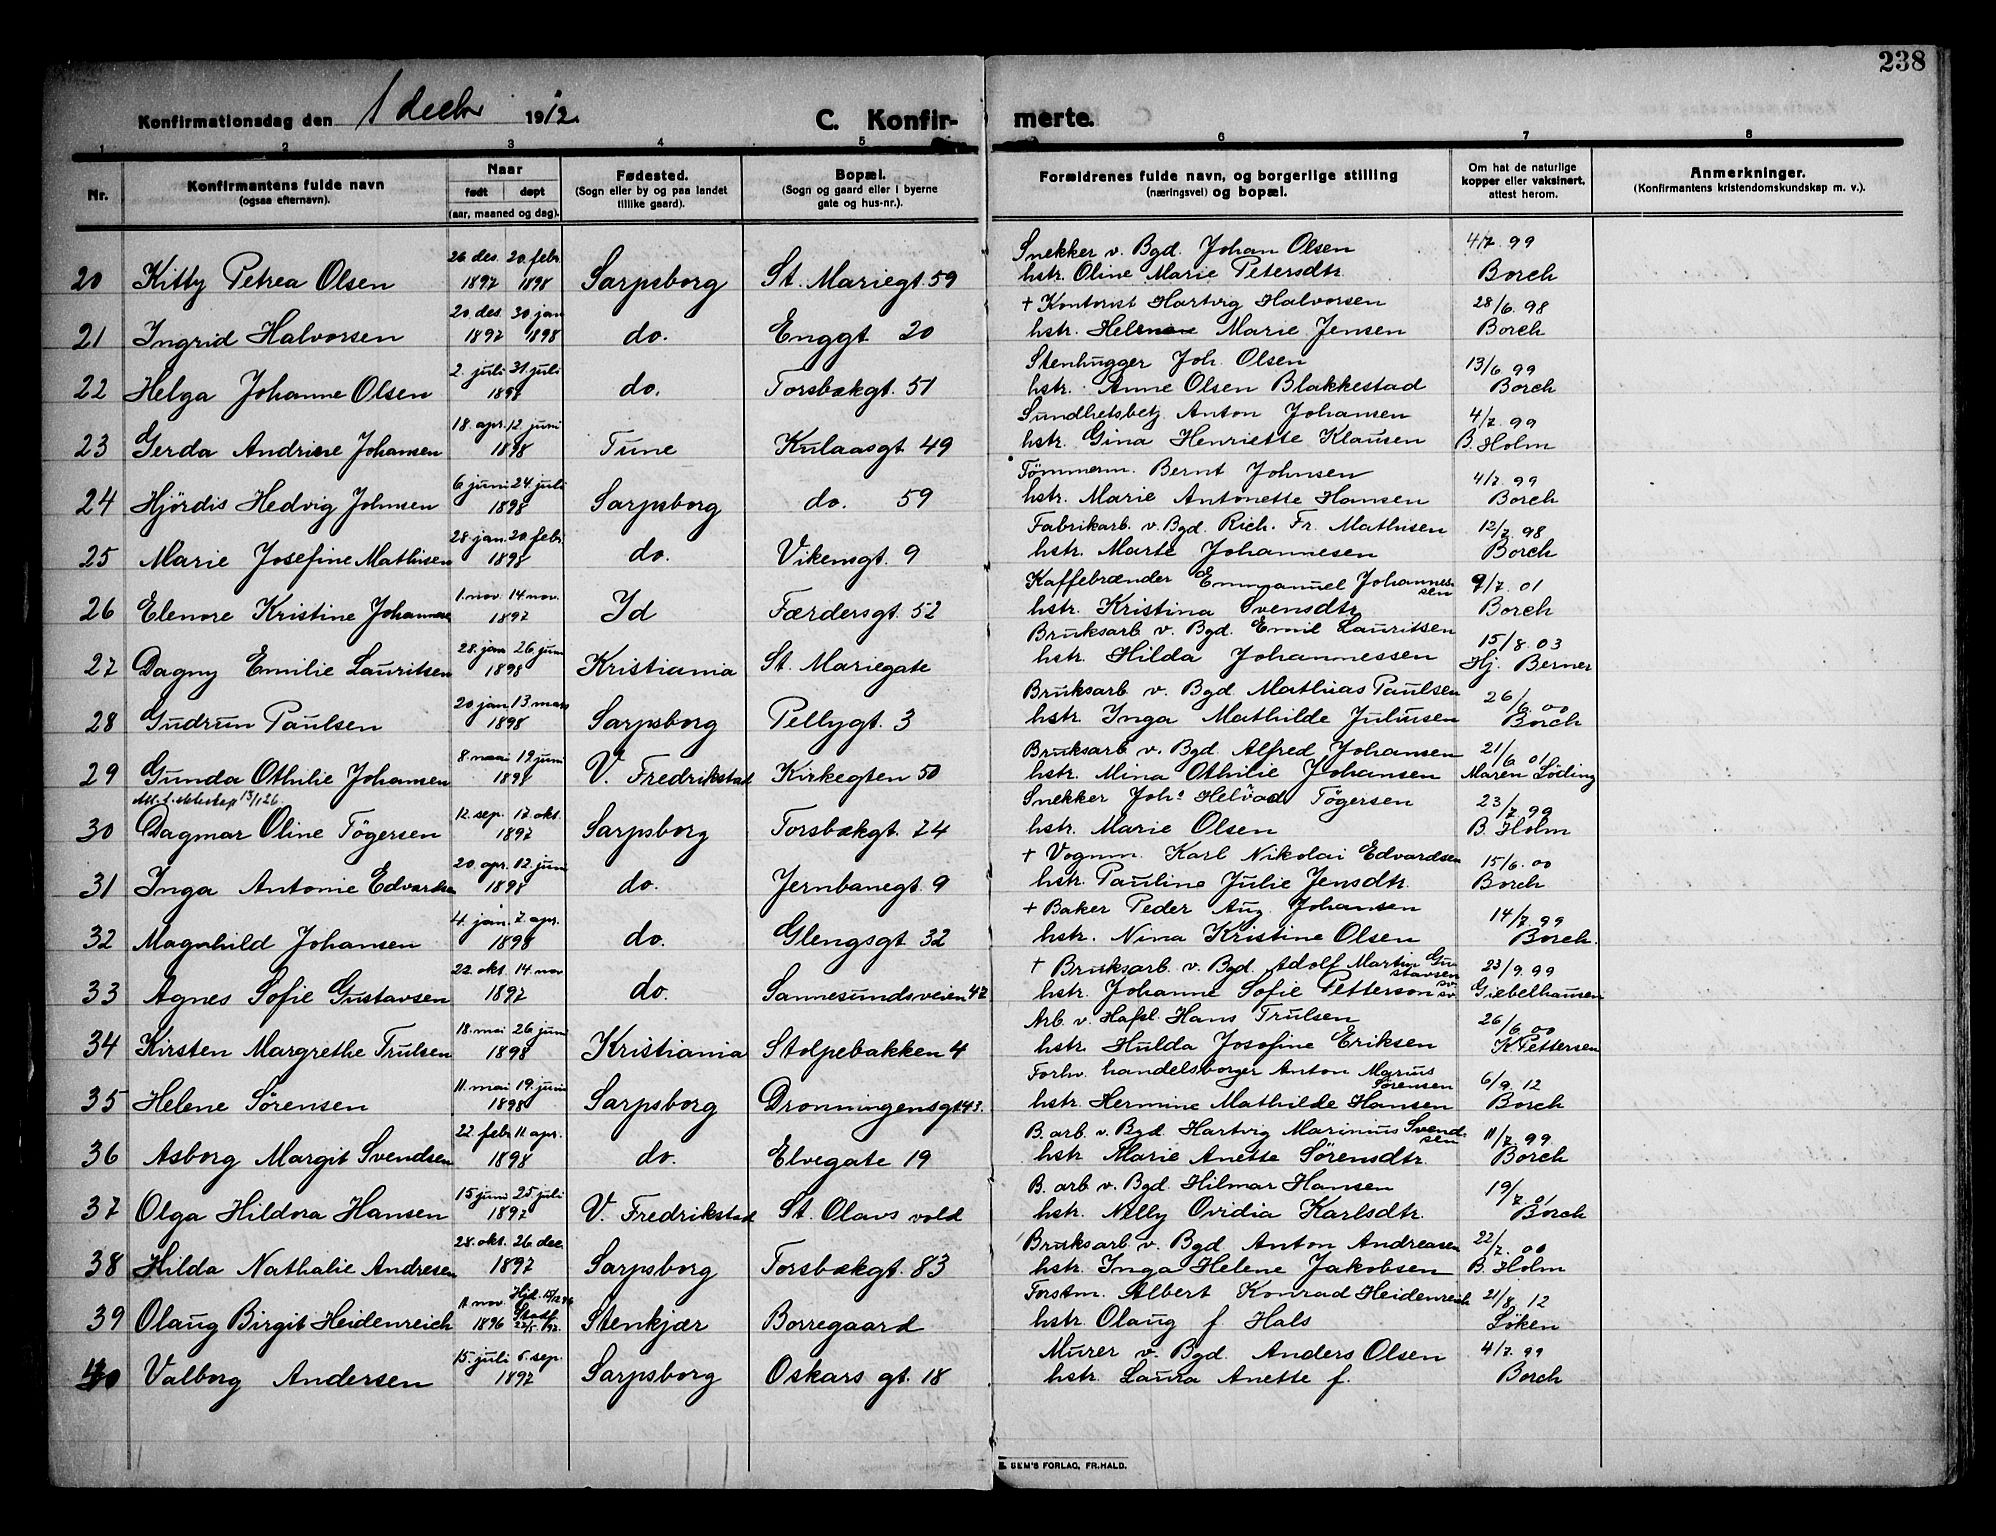 238
Konfirmationsdag den 1 decbr 1912. C. Konfirmerte.
1 2 3 4 5 6 7 8
Nr. Konfirmantens fulde navn (ogsaa efternavn). Naar født døpt (aar, maaned og dag). Fødested. (Sogn eller by og paa landet tillike gaard). Bopæl. (Sogn og gaard eller i byerne gate og hus-nr.). Forældrenes fulde navn, og borgerlige stilling (næringsvei) og bopæl. Om hat de naturlige kopper eller vaksinert, attest herom. Anmerkninger. (Konfirmantens kristendomskundskap m. v.).
26 des. 20 febr. Snekker v. Bgd. Johan Olsen 4/7 99
20 Kitty Petrea Olsen 1897 1898 Sarpsborg St. Mariegt. 59 hstr. Oline Marie Petersdtr. Borch
20 des. 30 jan + Kontorist Hartvig Halvorsen 28/6. 98
21 Ingrid Halvorsen 1897 1898 do. Enggt. 20 hstr. Helene Marie Jensen Borch
2. juli 31 juli Stenhugger Joh. Olsen 13/6 99
22 Helga Johanne Olsen 1898 do. Torsbækgt. 51 hstr. Anne Olsen Blakkestad Borch
18 apr. 12. juni Sundhetsbetj. Anton Johansen 4/7. 99
23 Gerda Andrine Johansen 1898 Tune Kulaasgt 49 hstr. Gina Henriette Klausen B. Holm
6 juni 24 juli Tømmerm. Bernt Johnsen 4/7. 99
24 Hjördis Hedvig Johnsen 1898 Sarpsborg do. 59 hstr. Marie Antonette Hansen Borch
28 jan. 20 febr. Fabrikarb. v. Bgd. Rich. Fr. Mathisen 12/7. 98
25 Marie Josefine Mathisen 1898 do. Vikensgt. 9 hstr. Marte Johannesen Borch
1. nov. 14 nov. Kaffebrænder Emmanuel Johannessen 9/7. 01
26 Elenore Kristine Johannese 1897 Id Færdersgt. 52 hstr. Kristina Svensdtr Borch
28. jan 26. juni Bruksarb v. Bgd. Emil Lauritsen 15/8. 03
27 Dagny Emilie Lauritsen 1898 Kristiania St. Mariegate hstr. Hilda Johannessen Hj. Berner
20 jan 13 mars Bruksarb v. Bgd. Mathias Paulsen 26/6. 00
28 Gudrun Paulsen 1898 Sarpsborg Pellygt. 3 hstr. Inga Mathilde Juliusen Borch
8. mai 19 juni Bruksarb. v. Bgd. Alfred Johansen 21/6 01
29 Gunda Othilie Johansen 1898 V. Fredrikstad Kirkegten 50 hstr. Mina Othilie Johansen Maren Löding
13/1 26. 12. sep. 17. okt. Snekker Johs Helvad Tögersen 23/7. 99
30 Dagmar Oline Tögersen 1897 Sarpsborg Torsbækgt. 74 hstr. Marie Olsen B. Holm
20 apr. 12. juni + Vognm. Karl Nikolai Edvardsen 15/6. 00
31 Inga Antonie Edvardsen 1898 do. Jernbanegt. 9 hstr. Pauline Julie Jensdtr. Borch
4. jan. 7. apr. + Baker Peder Aug. Johansen 14/7. 99
32 Magnhild Johansen 1898 do. Glengsgt 32 hstr. Nina Kristine Olsen Borch.
22. okt. 14. nov + Bruksarb. v. Bgd. Adolf Martin Gustavsen 23/9. 99
33 Agnes Sofie Gustavsen 1897 do. Sannesundsveien 47 hstr. Johanne Sofie Petterson sv. sv. Giebelhausen
18. mai 26 juni Arb. v. Hafsl. Hans Trulsen 26/6. 00
34 Kirsten Margrethe Trulsen 1898 Kristiania Stolpebakken 4 hstr. Hulda Josofine Eriksen K. Pettersen
11. mai 19. juni Forhv. handelsborger Anton Marius Sørensen 6/9. 12
35 Helene Sørensen 1898 Sarpsborg Dronningensgt 43. hstr. Hermine Mathilde Hansen Borch
22. febr 11 apr. B. arb. v. Bgd. Hartvig Marinus Svendsen 11/7. 99
36 Asborg Margit Svendsen 1898 do. Elvegate 19 hstr Marie Anette Sørensdtr. Borch
15 juni 25 juli B. arb v. Bgd. Hilmar Hansen 19/7. 01
37 Olga Hildora Hansen 1897 V. Fredrikstad St. Olavs vold hstr. Nelly Ovidia Karlsdtr. Borch
28. okt. 26 dec. Bruksarb v. Bgd Anton Andreasen 22/7. 00
38 Hilda Nathalie Andresen 1897 Sarpsborg Torsbækgt. 83 hstr. Inga Helene Jakobsen B. Holm
11. nov. Hjd. 15/12 96 Forstm. Albert Konrad Heidenreich 21/8. 12
39 Olaug Birgit Heidenreich 1896 Stadf. 22/5 97. Stenkjær Borregaard hstr. Olaug f. Hals Löken
15. juli 5. sep. Murer v. Bgd. Anders Olsen 4/7. 99
40 Valborg Andersen 1897 Sarpsborg Oskars gt. 18 hstr. Laura Anette f. Borch
E. SEM'S FORLAG, FR.HALD.